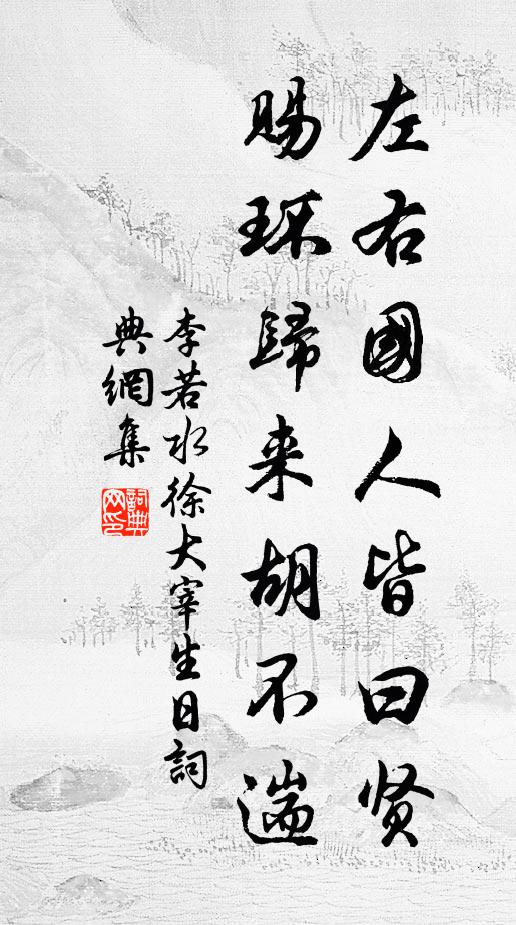 左右國人皆曰贤
賜环歸来胡不遄
李若水徐大宰生日詞
典網集
詞典网印